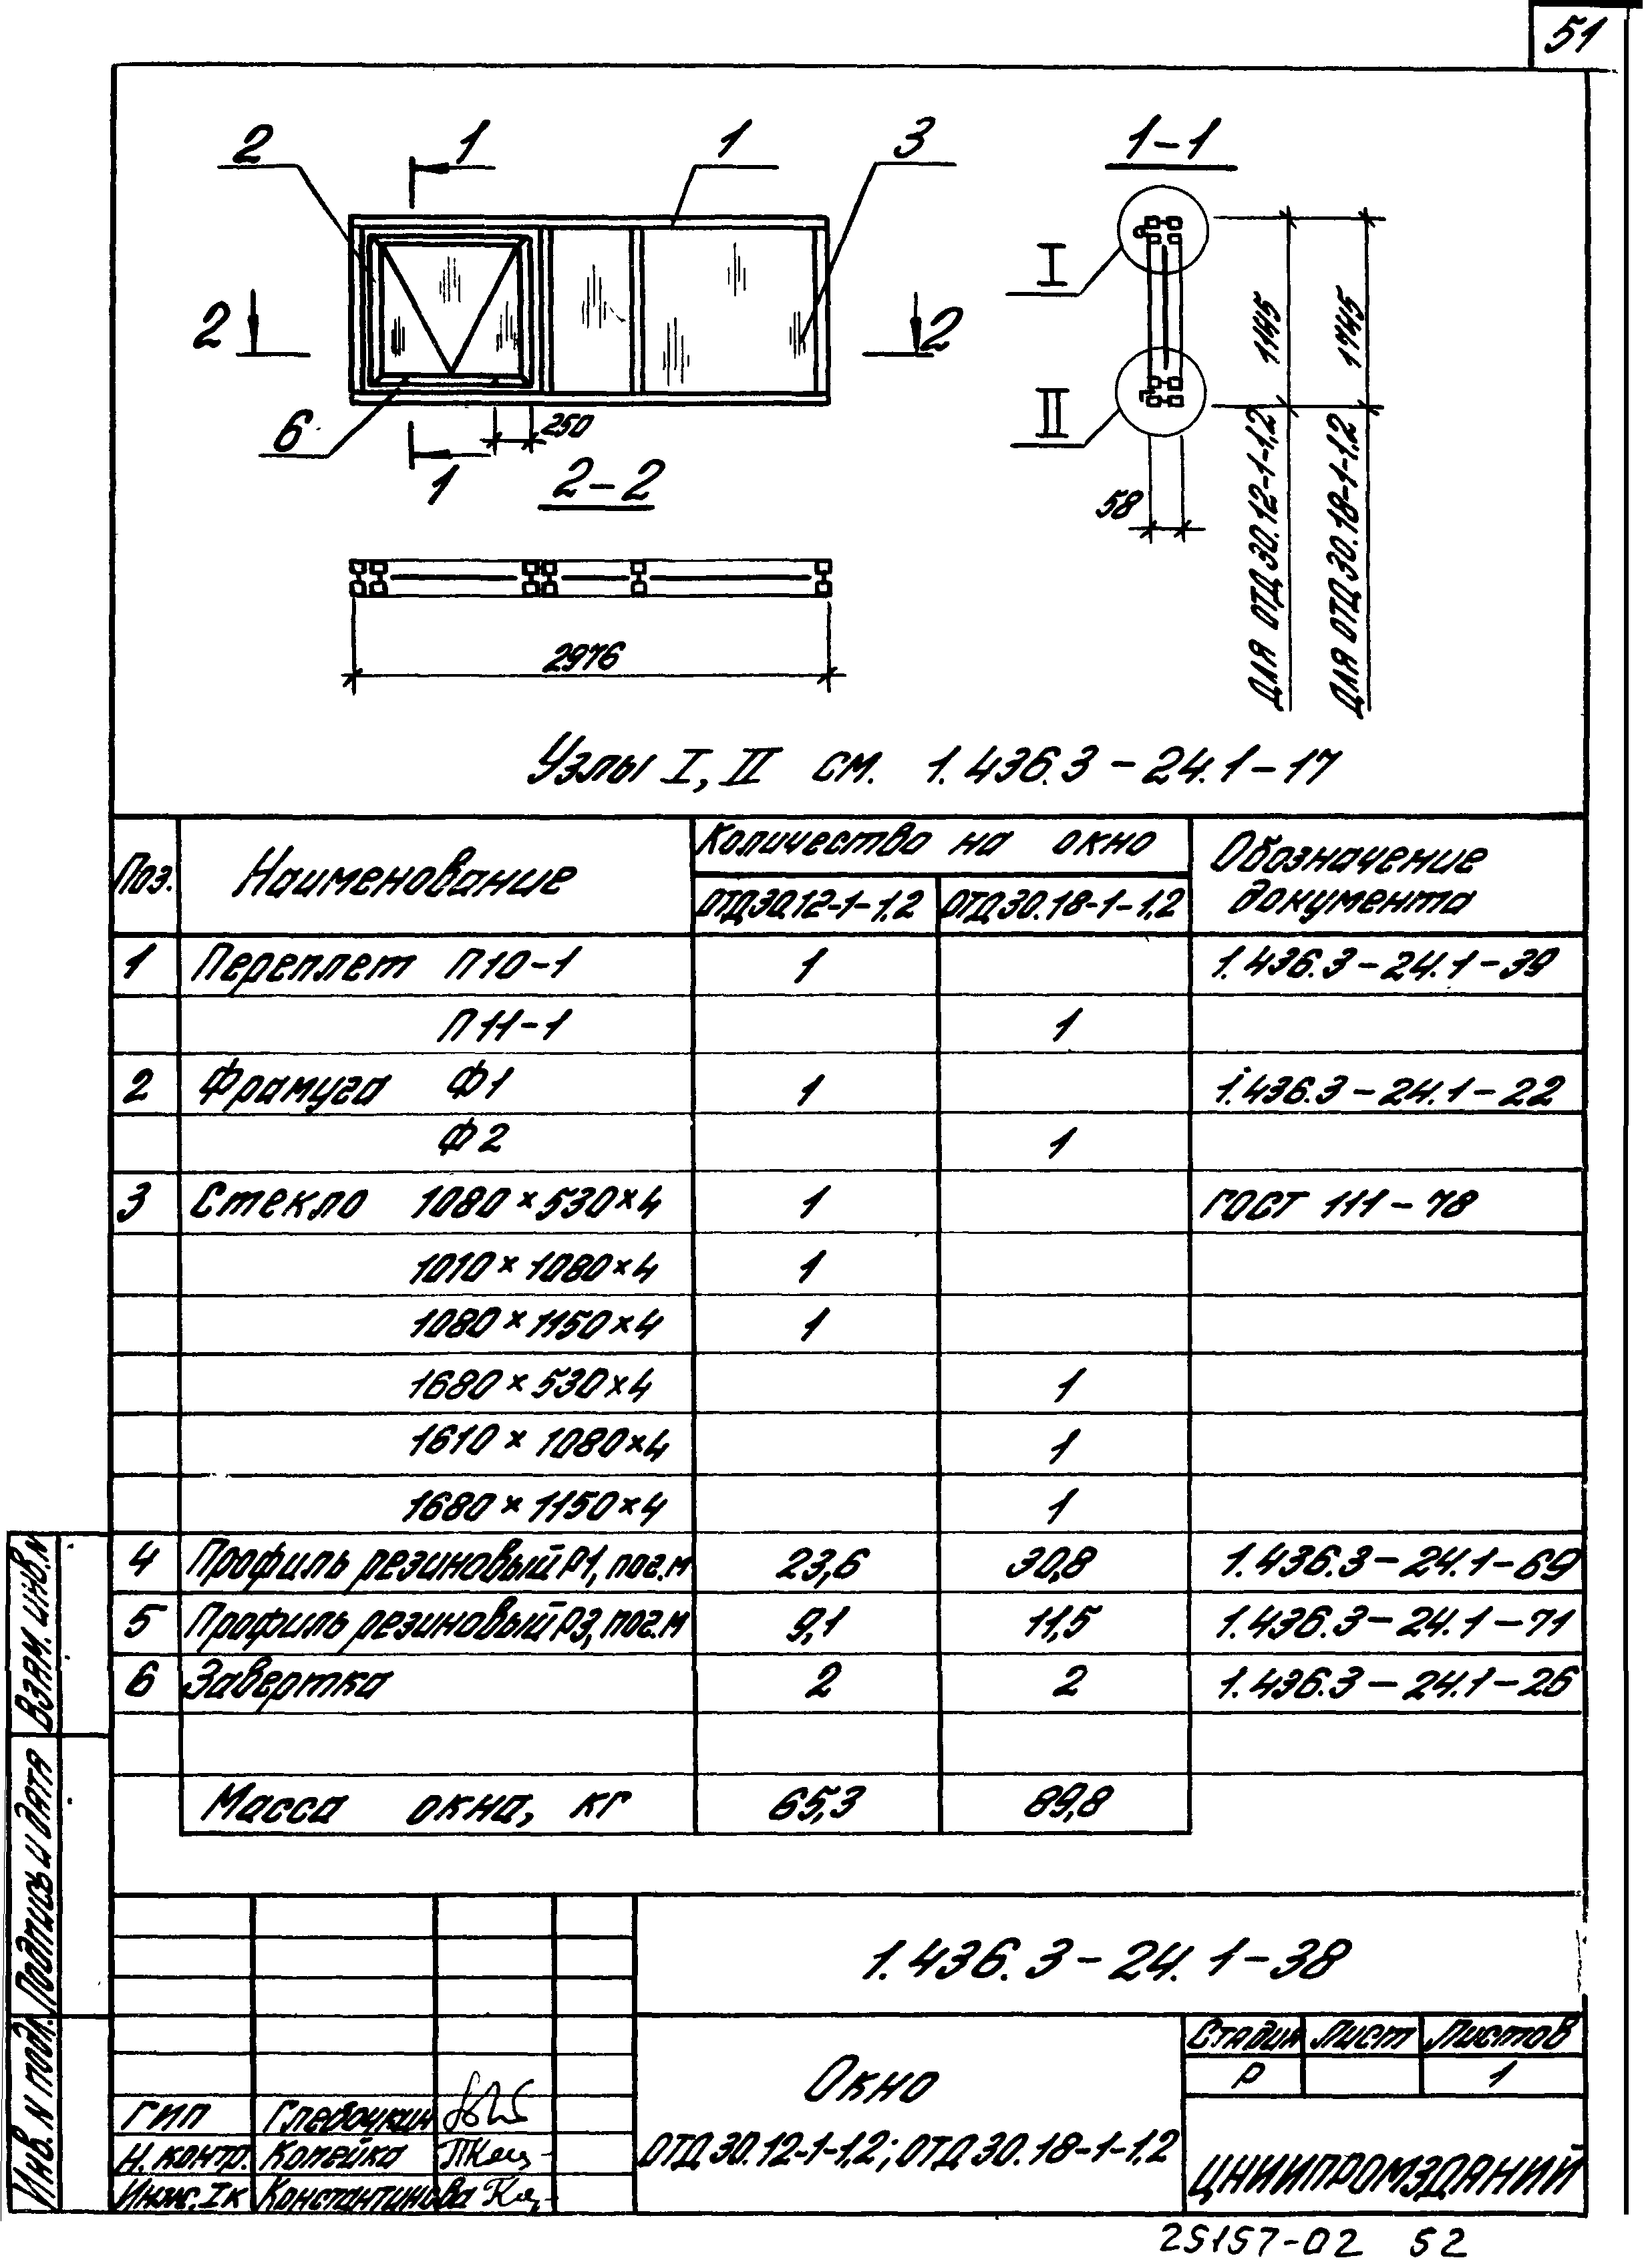 51
2 1 1 3
1-1
2 2
I
II
6
250
1
2-2
58
1145
1745
для ОТД 30.12-1-1,2
для ОТД 30.18-1-1,2
2976
Узлы I, II см. 1.436.3-24.1-17
Поз. Наименование Количество на окно Обозначение документа
ОТД 30.12-1-1,2 ОТД 30.18-1-1,2
1 Переплет П10-1 1 1.436.3-24.1-39
П11-1 1
2 Фрамуга Ф1 1 1.436.3-24.1-22
Ф2 1
3 Стекло 1080×530×4 1 ГОСТ 111-78
1010×1080×4 1
1080×1150×4 1
1680×530×4 1
1610×1080×4 1
1680×1150×4 1
4 Профиль резиновый Р1, пог.м 23,6 30,8 1.436.3-24.1-69
5 Профиль резиновый Р3, пог.м 9,1 11,5 1.436.3-24.1-71
6 Завертка 2 2 1.436.3-24.1-26
Масса окна, кг 65,3 89,8
Взам. инв.N
Подпись и дата
Инв. N подл.
1.436.3-24.1-38
Окно
ОТД 30.12-1-1,2; ОТД 30.18-1-1,2
Стадия Лист Листов
Р 1
ЦНИИПРОМЗДАНИЙ
ГИП Глебочкин
Н. контр. Копейко
Инж. Iк Константинова
25157-02 52